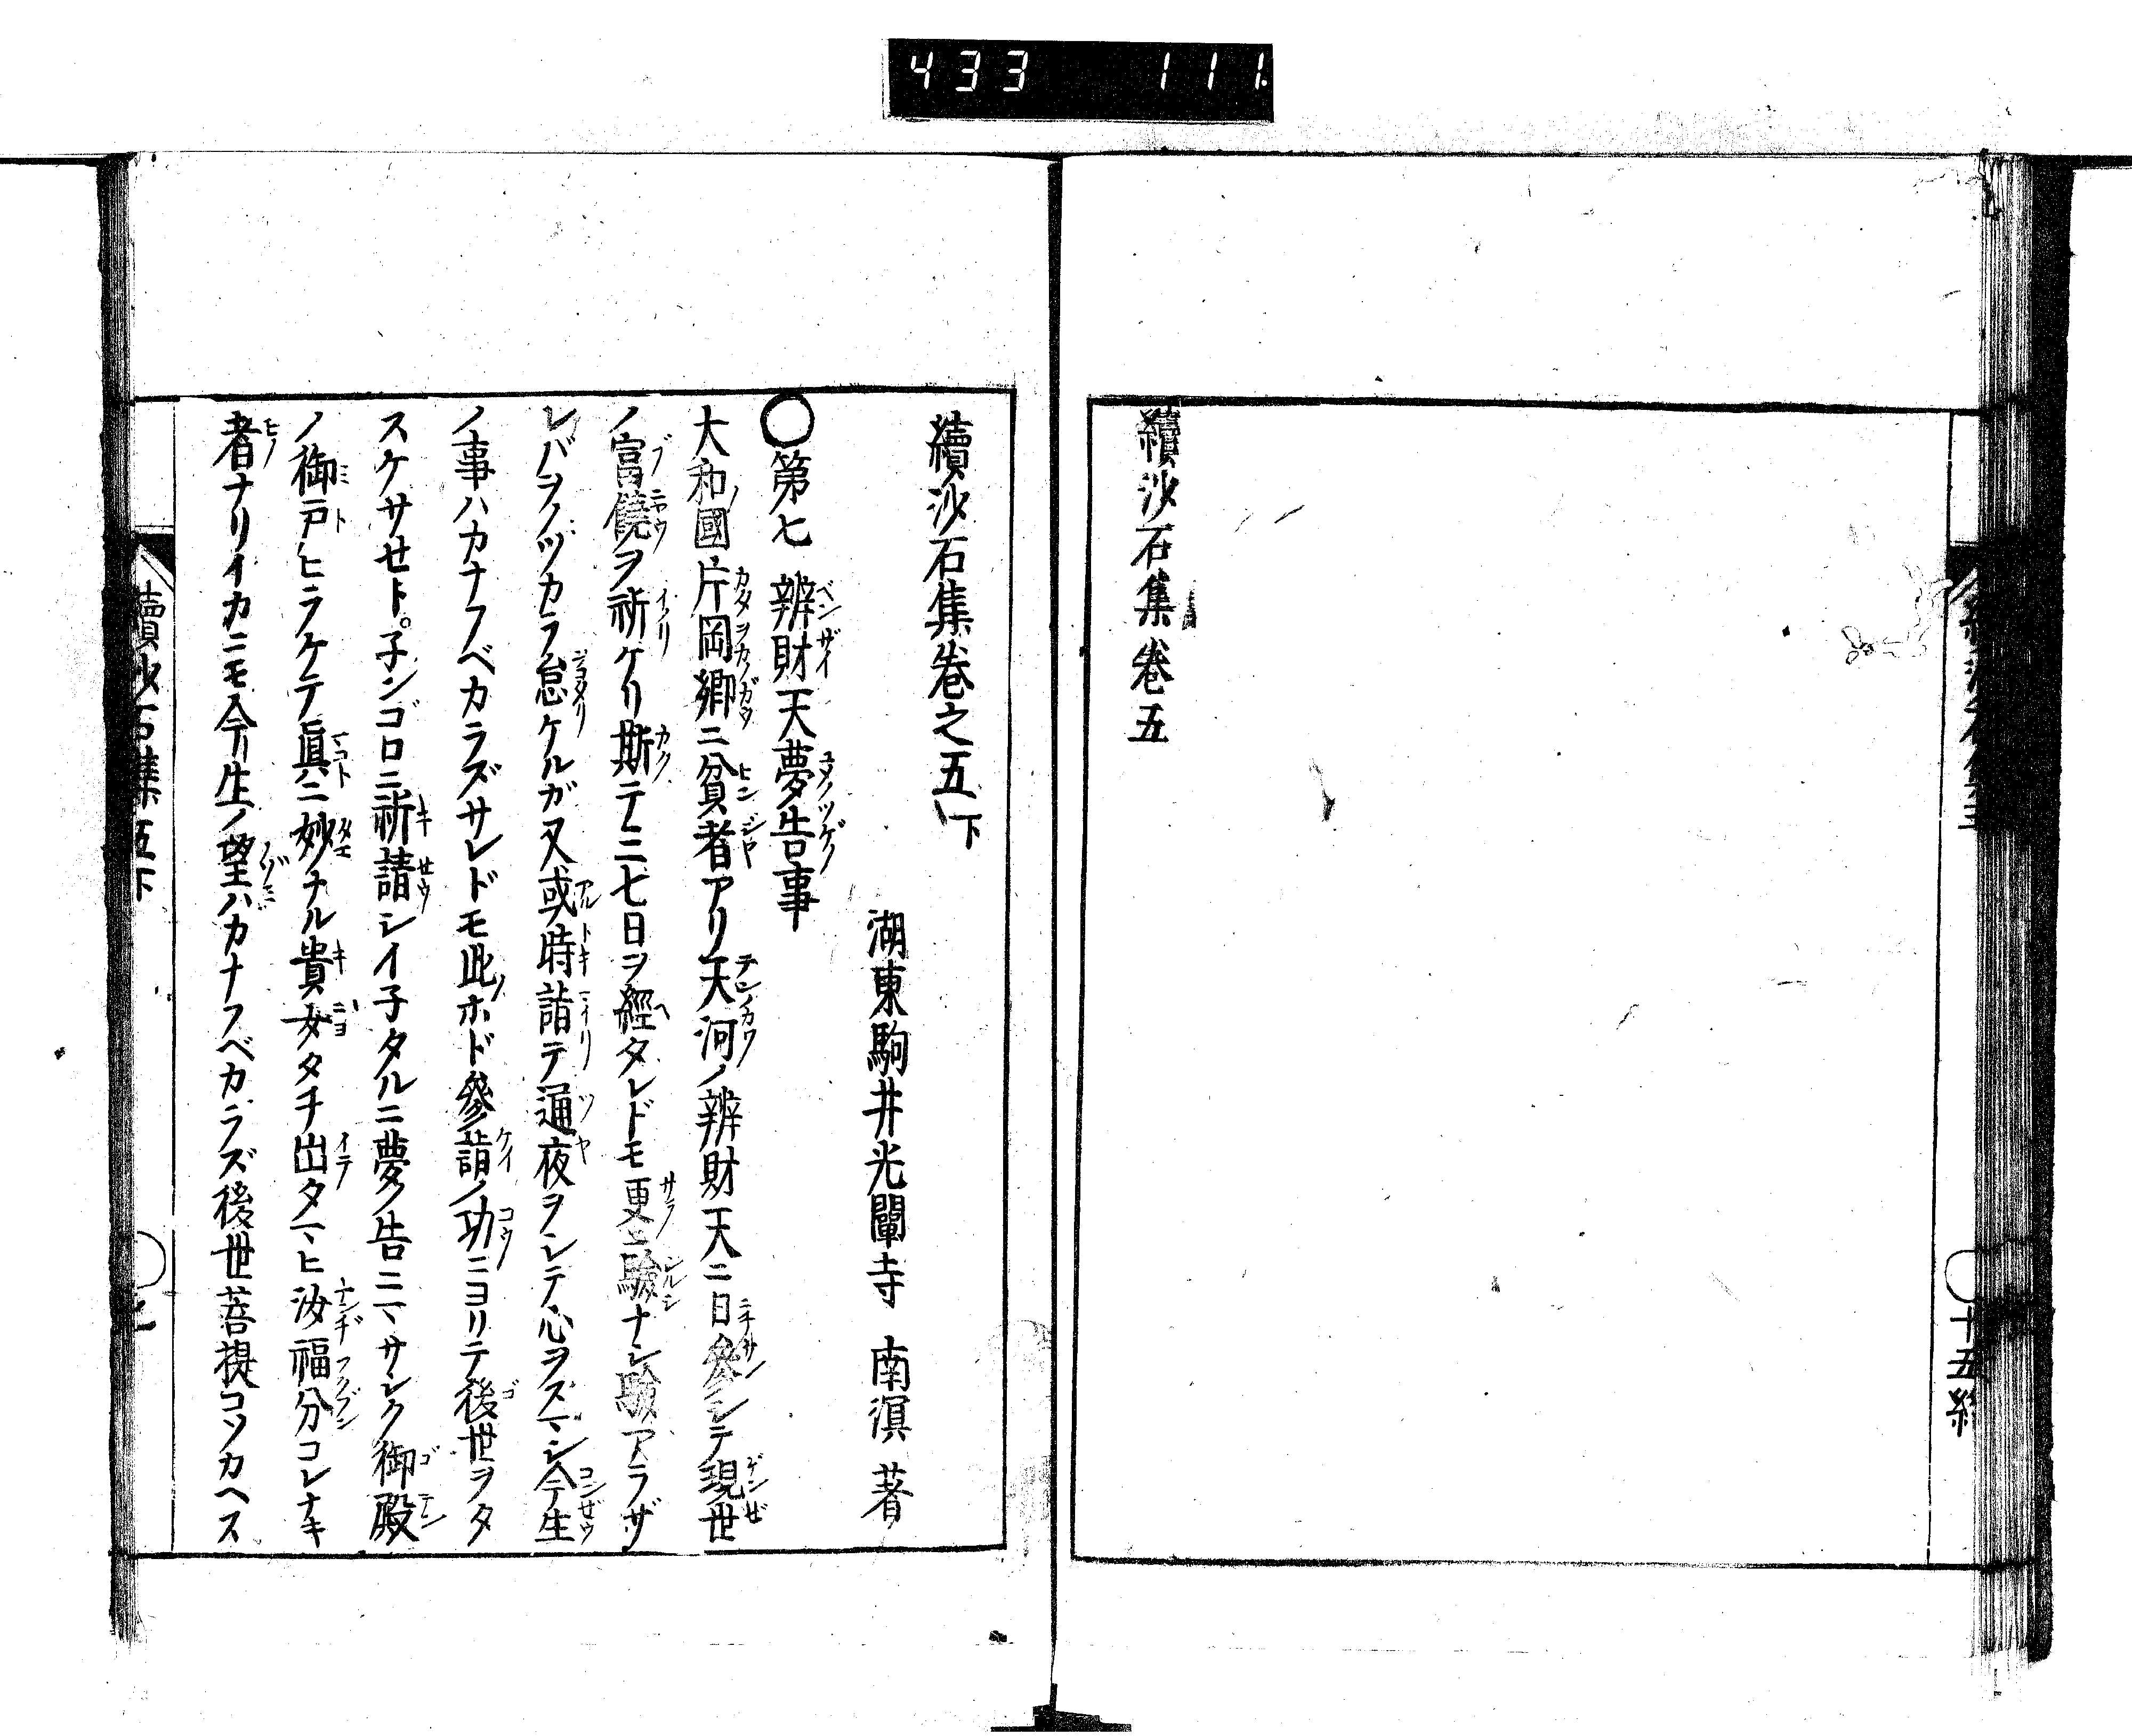 433 111
續沙石集卷五
十五終
續沙石集卷之五下
湖東駒井光闡寺 南溟 著
○第七 辨財天夢告事
大和國片岡郷ニ貧者アリ天河ノ辨財天ニ日參シテ現世
ノ富饒ヲ祈ケリ斯テ二七日ヲ經タレドモ更ニ驗ナシ驗アラザ
レバヲノヅカラ怠ケルガ又或時詣テ通夜ヲシテ心ヲスマシ今生
ノ事ハカナフベカラズサレドモ此ホド參詣ノ功ニヨリテ後世ヲタ
スケサセト。子ンゴロニ祈請シイ子タルニ夢ノ告ニマサシク御殿
ノ御戸ヒラケテ眞ニ妙ナル貴女タチ出タマヒ汝福分コレナキ
者ナリイカニモ今生ノ望ハカナフベカラズ後世菩提コソカヘス
續沙石集五下
七